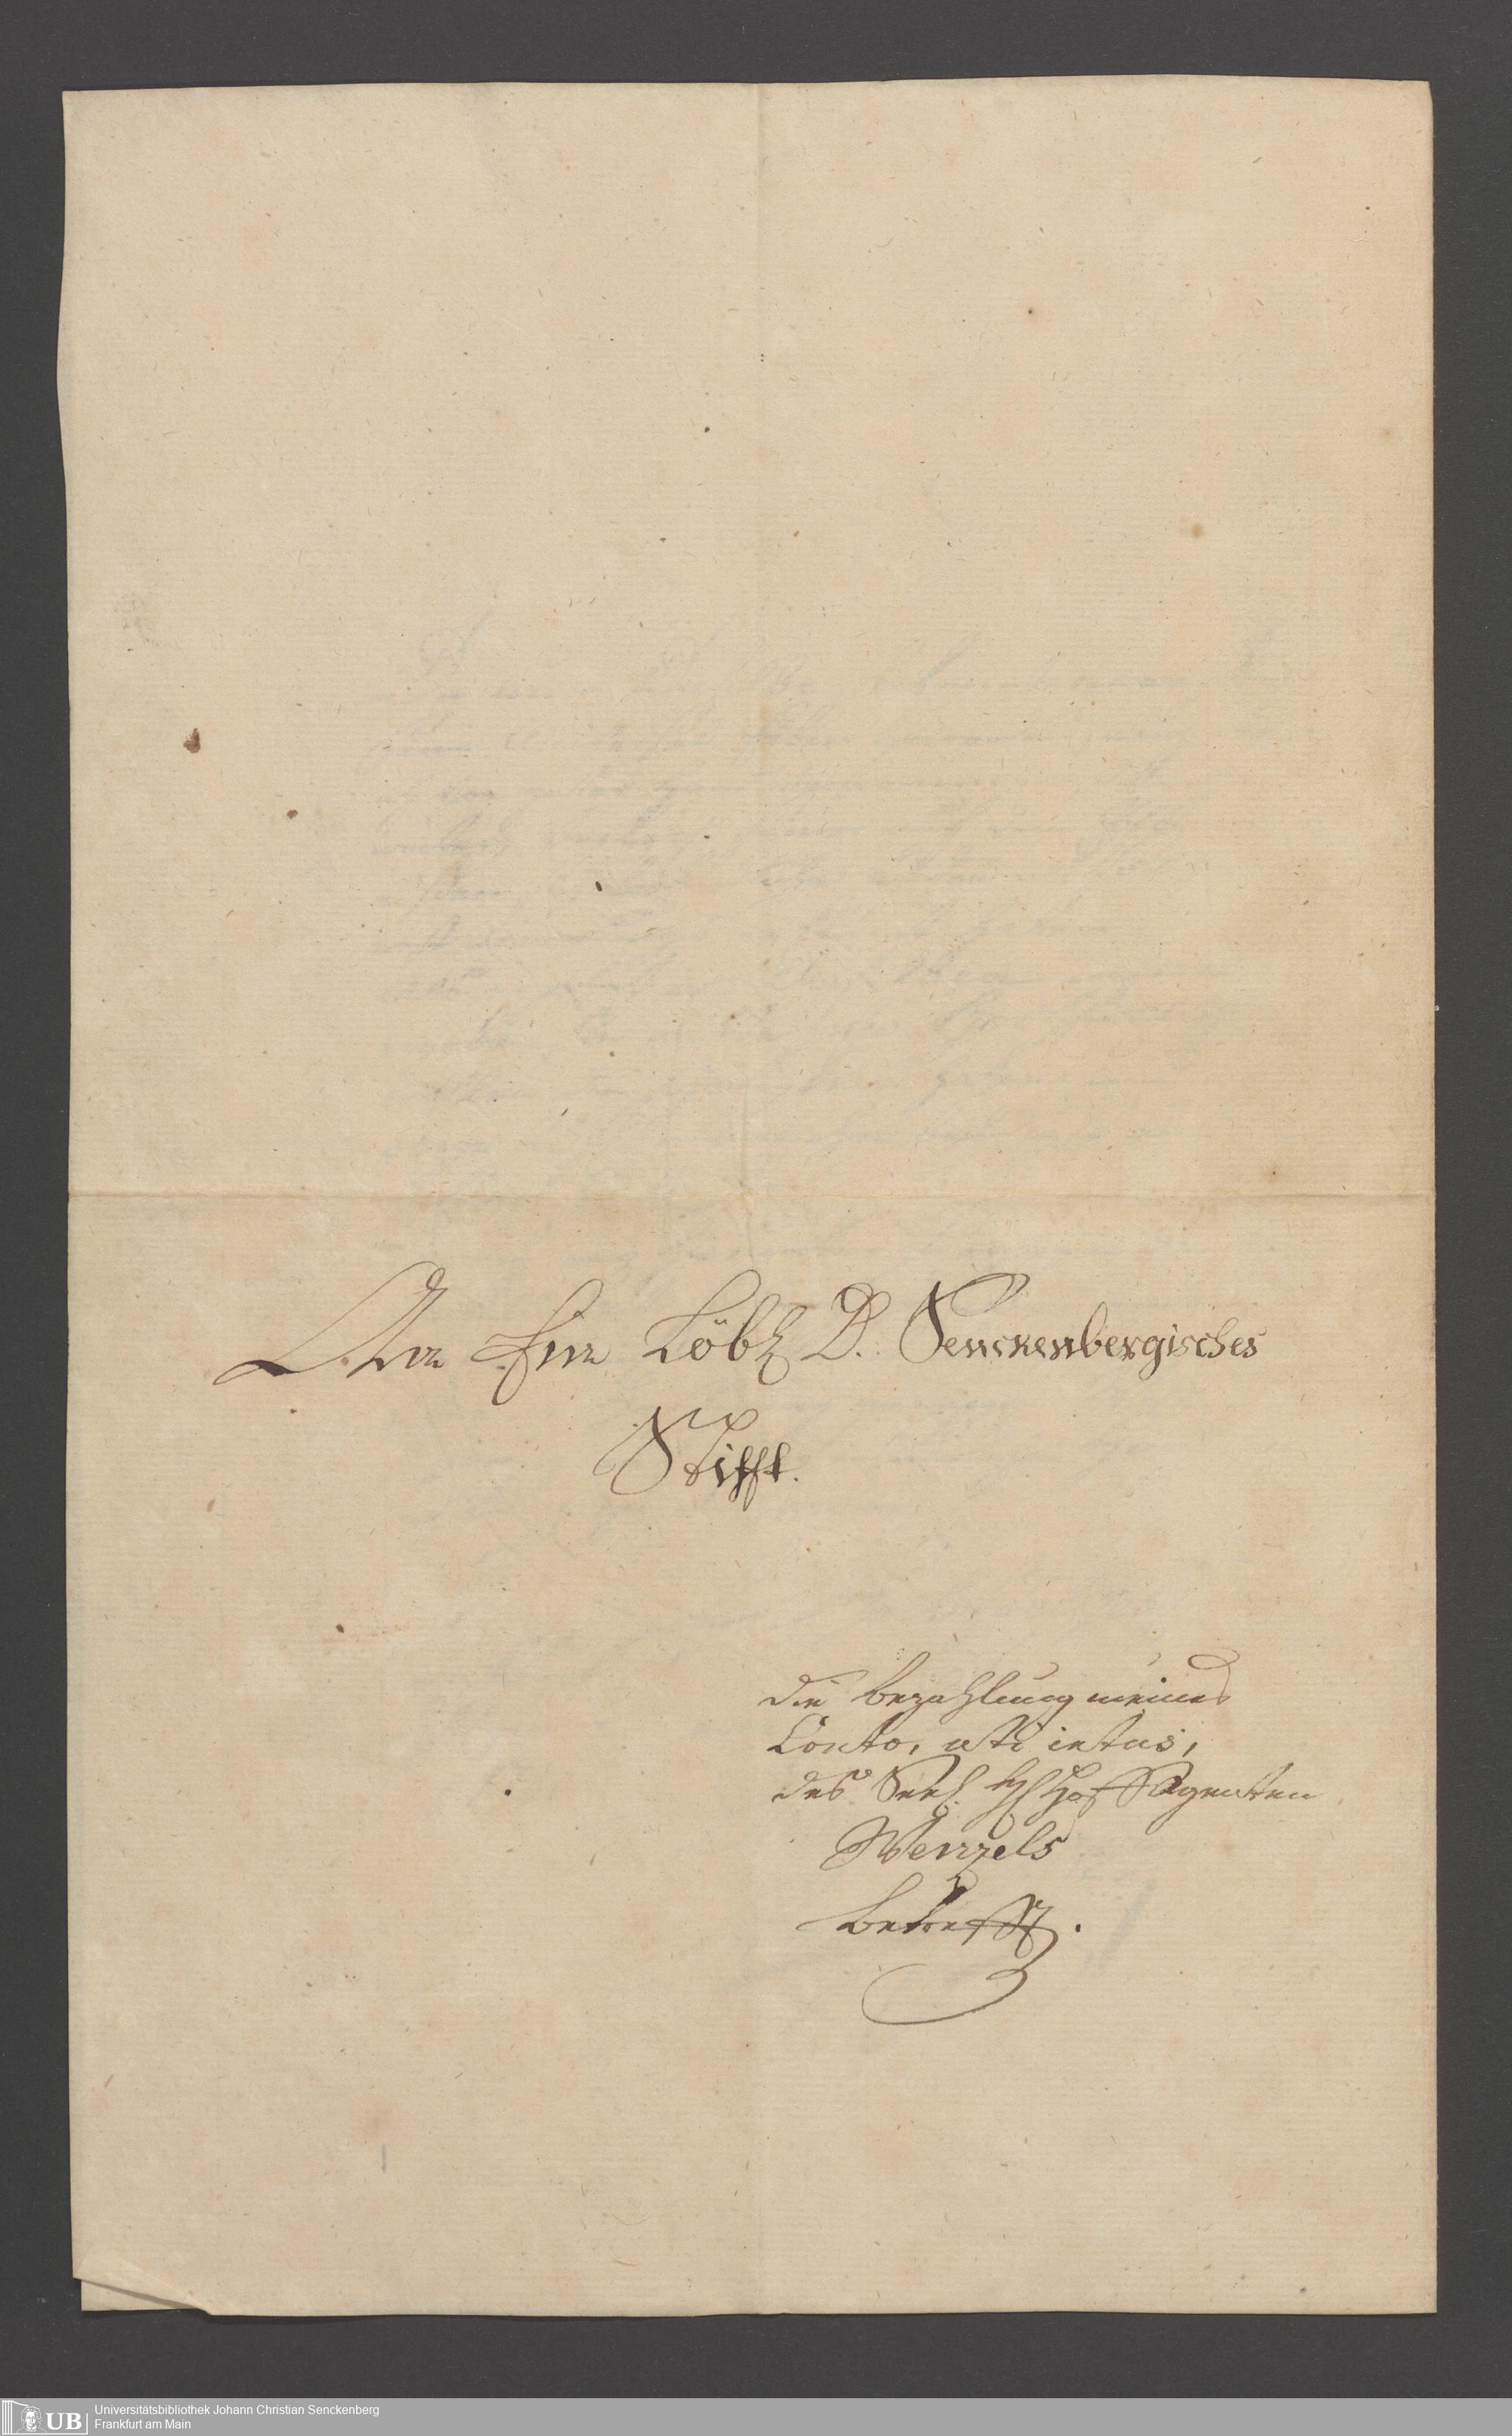 An Ein Löbl. D. Senckenbergisches
Stifft.
die bezahlung meines
Conto, uti intus,
des Seel. H. Hoff Agenten
Wenzels
betrefft.
UB Universitätsbibliothek Johann Christian Senckenberg
Frankfurt am Main